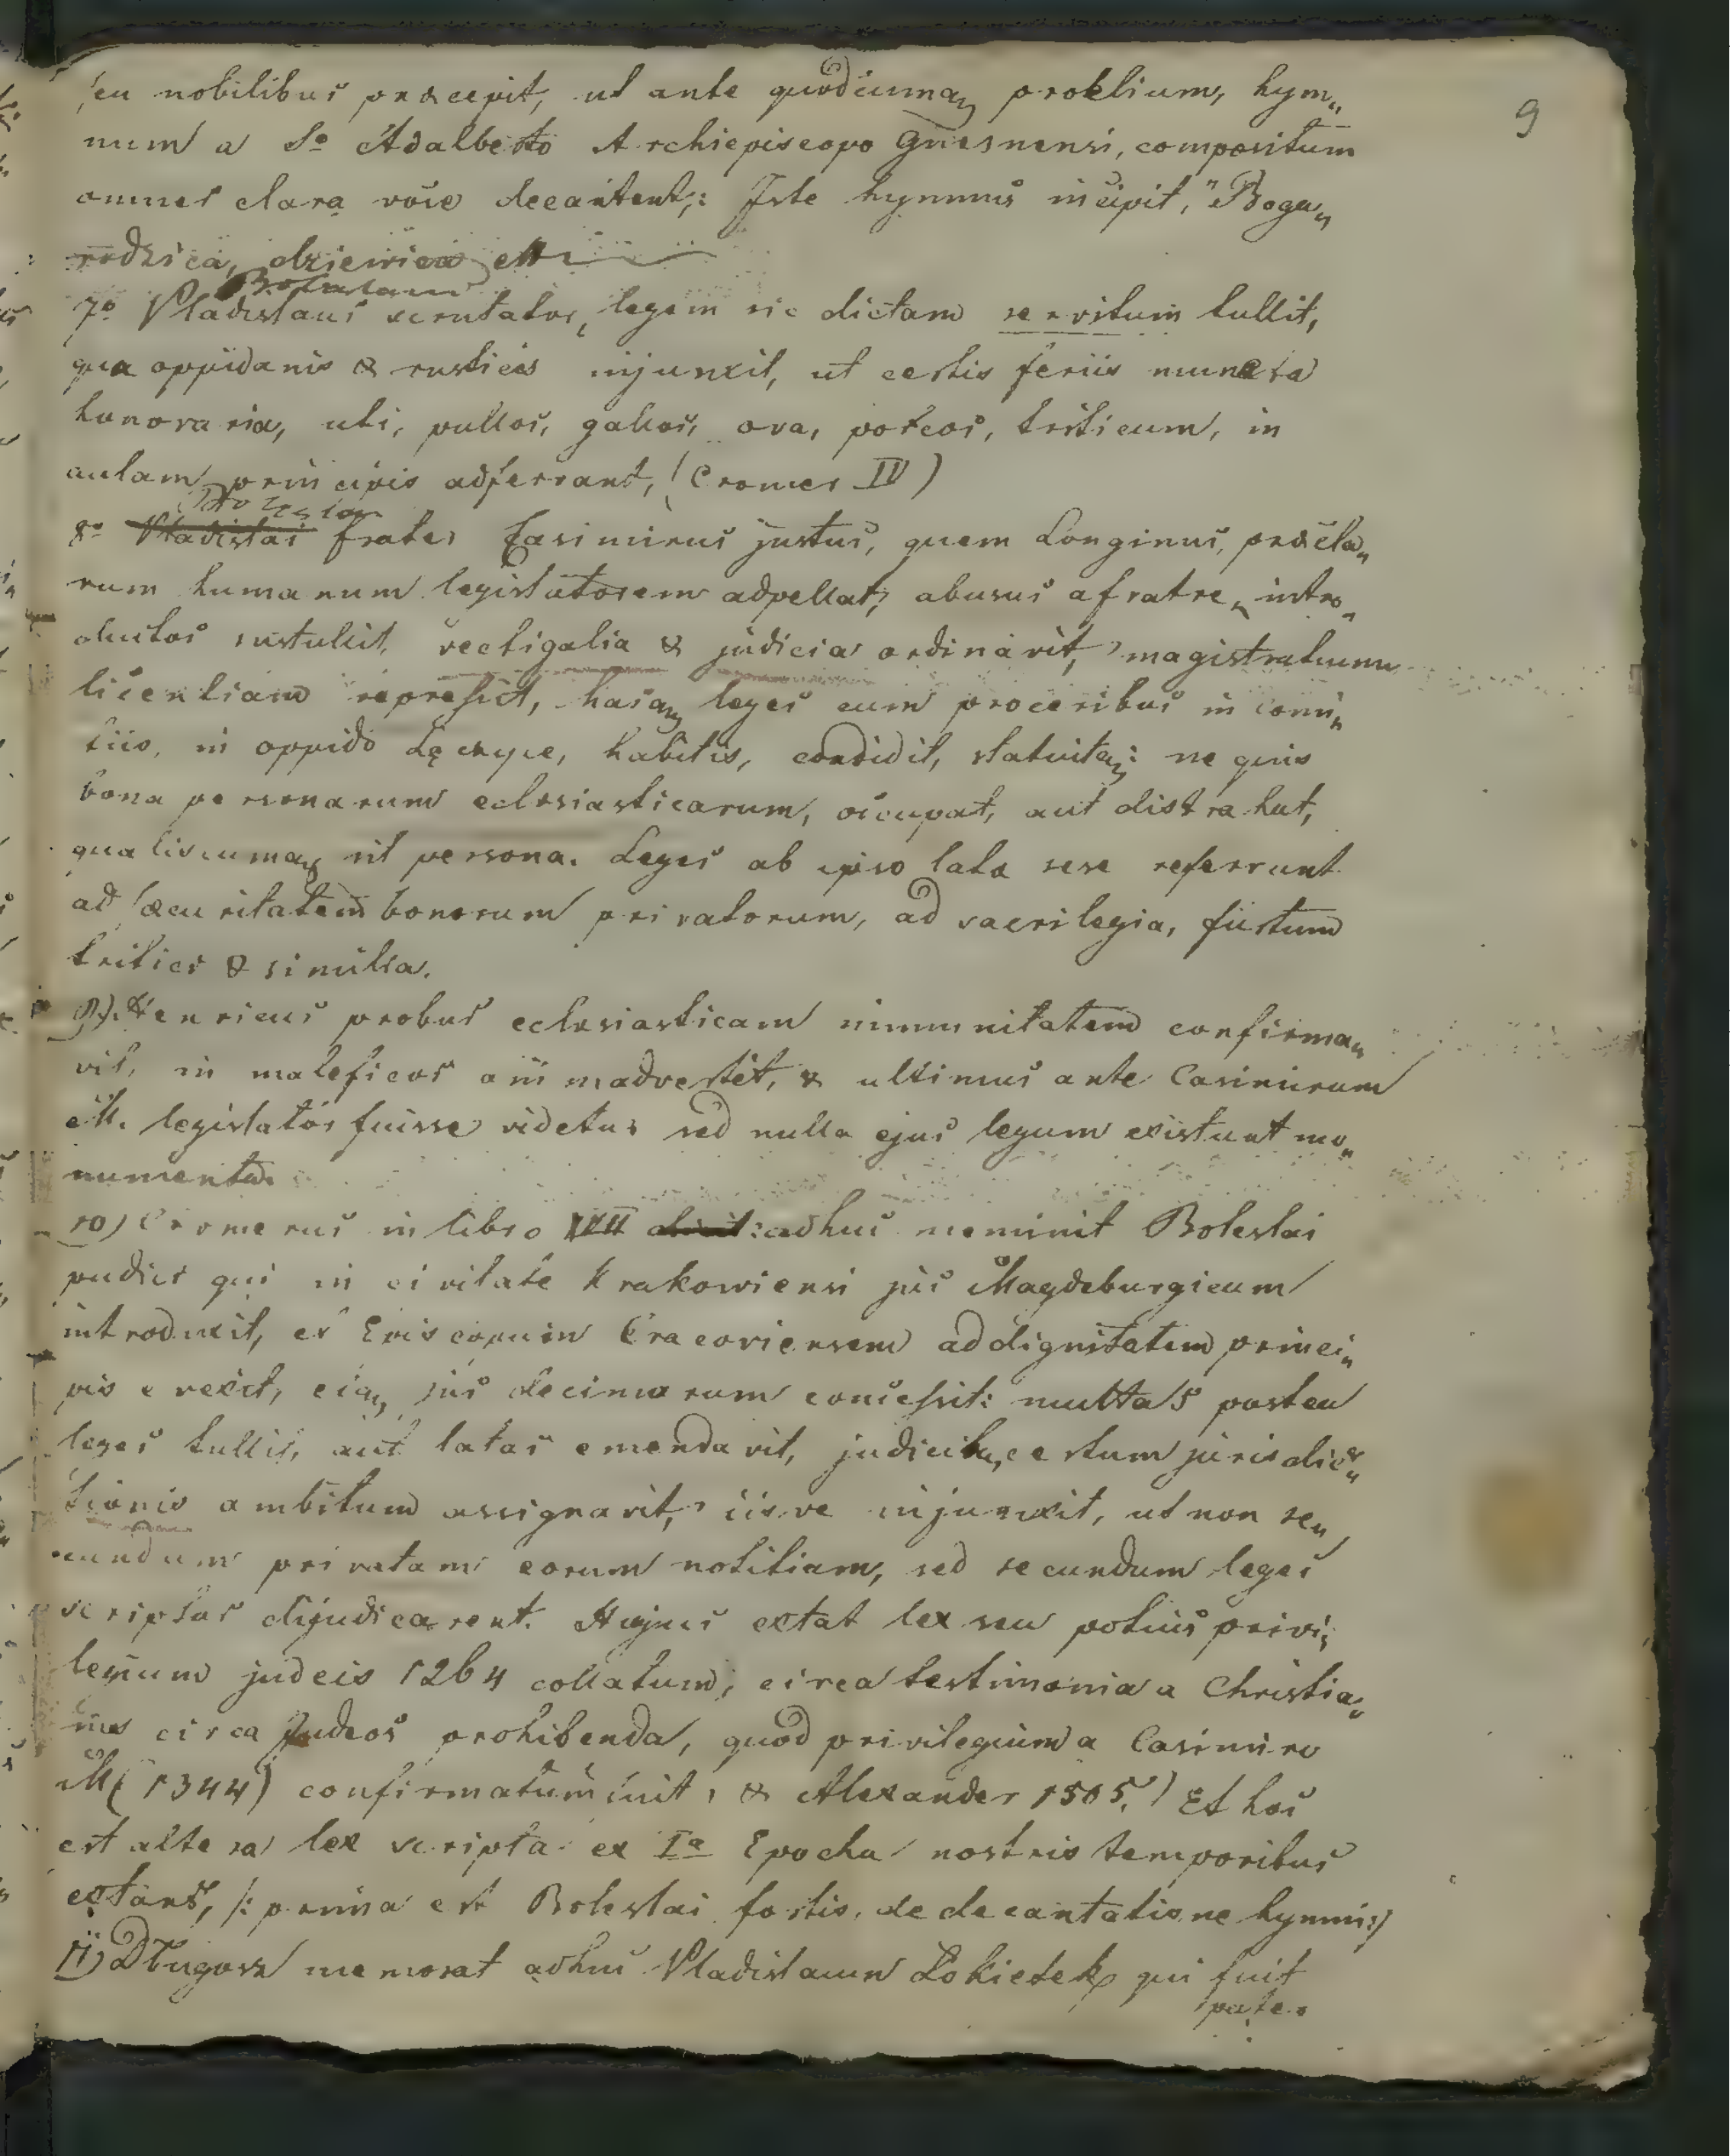 9
seu nobilibus præcepit, ut ante quodcumq, proelium, hym„
num a So Adalberto Archiepiscopo Gnesnensi, compositum
omnes clara voce decantent,: Iste hymnus incipit, "Boga„
rodzica, dziewica ett
7o Vladislaus scrutator, legem sic dictam servitum tullit,
qua oppidanis & rusticis injunxit, ut certis feriis munera
honoraria, uti, pullos, gallos, ova, porcos, triticum, in
aulam principis adferrant, (Cromer IV)
Boleslai
8o Vladislai frater Casimirus justus, quem Longinus, præcla„
rum humanum legislatorem adpellat, abusus a fratre, intro„
ductos sustullit, vectigalia & judicia ordinavit, magistratuum
licentiam repressit, hasq, leges cum proceribus in comi„
tiis, in oppido Łęczyce, habitis, condidit, statuitq,: ne quis
bona personarum eclesiasticarum, occupat, aut distrahat,
qualiscumq, sit persona. Leges ab ipso latæ sese referrunt
ad sæcuritatem bonorum privatorum, ad sacrilegia, furtum
tritici & similia.
9). Henricus probus eclesiasticam immunitatem confirma„
vit, in maleficos animadvertit, & ultimus ante Casimirum
M. legislator fuisse videtur sed nulla ejus legum existunt mo„
numenta.
10) Cromerus in libro VIII dicit: adhuc meminit Boleslai
pudici qui in civitate Krakowiensi jus Magdeburgicum
introduxit, et Episcopum Cracoviensem ad dignitatem princi„
pis erexit, eiq, jus decimarum concessit: multas postea
leges tullit, aut latas emendavit, judicibq, certum jurisdic„
tionis ambitum assignavit, iisve injunxit, ut non se„
cundum privatam eorum notitiam, sed secundum leges
scriptas dijudicarent. Hujus extat lex seu potius privi„
legium judeis 1264 collatum, circa testimonia a Christia„
nis circa Judeos prohibenda, quod privilegium a Casimiro
M( 1344) confirmatum fuit, & Alexander 1505.) Et hæc
est altera lex scripta ex Ia Epocha nostris temporibus
extans, /: prima est Boleslai fortis, de decantatione hymni:)
11) Długosz memorat adhuc Vladislaum Łokietek qui fuit
pater